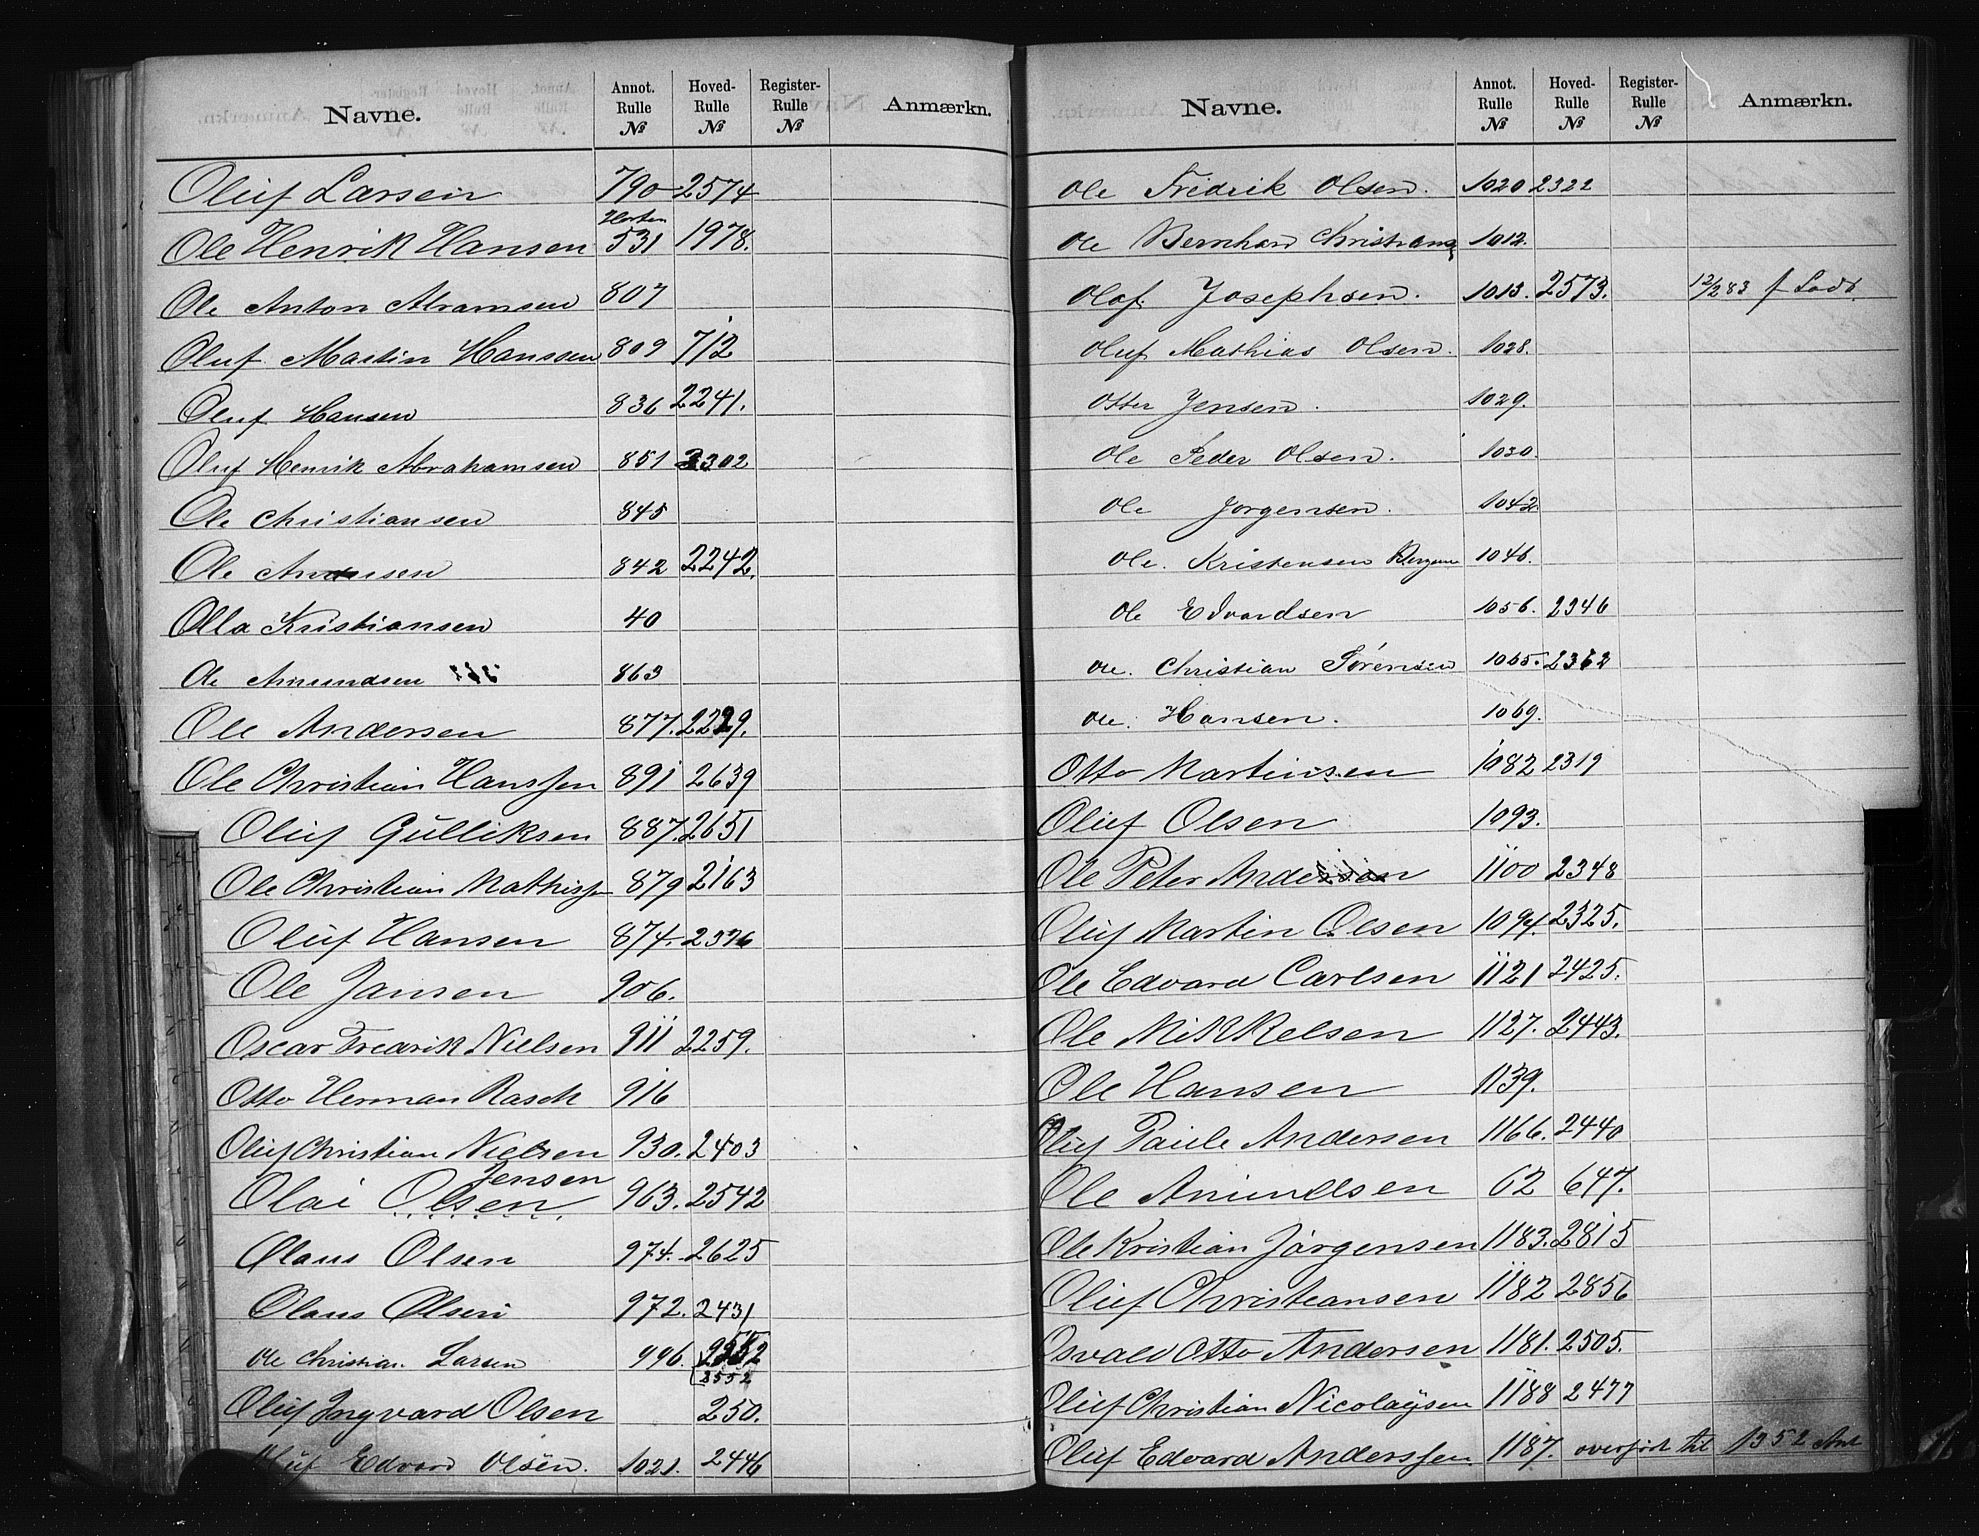 Navne. Annot. Rulle № Hoved- Rulle № Register- Rulle № Anmærkn.
Oluf Larsen 790 2574
Horten
Ole Henrik Hansen 531 1978.
Ole Anton Abramsen 807
Oluf Martin Hanssen 809 712
Oluf Hansen 836 2241.
Oluf Henrik Abrahamsen 851 2302
Ole Christiansen 845
Ole 842 2242.
Olla Kristiansen 40
Ole Amundsen 863
Ole Andersen 877. 2229.
Ole Christian Hanssen 891 2639
Oluf Gulliksen 887. 2651
Ole Christian Mathiss 879 2163
Oluf Hansen 874. 2376
Ole Jansen 906.
Oscar Fredrik Nielsen 911 2259.
Otto Herman Rasch 916
Oluf Christian Nielsen 930. 2403
Jensen
Olai Olsen 963. 2542
Olaus Olsen 974. 2625
Olaus Olsen 972. 2431
Ole Christian Larsen 996.
2552
Oluf Ingvard Olsen 250.
Oluf Edvard Olsen. 1021. 2446
Navne. Annot. Rulle № Hoved- Rulle № Register- Rulle № Anmærkn.
Ole Fredrik Olsen. 1020 2322
Ole Bernhard 1012.
Olaf Josephsen. 1013. 2573. 12/2 83 f
Oluf Mathias Olsen. 1028.
Otter Jensen. 1029.
Ole Peder Olsen. 1030.
Ole Jorgensen. 1042
Ole. Kristensen Bergan 1046.
Ole Edvardsen 1056. 2346
Ole. Christian Sørensen 1065. 2362
Ole. Hansen. 1069.
Otto Martinsen 1082 2319
Oluf Olsen 1093.
Ole Peter Andersen 1100 2348
Oluf Martin Olsen 1094. 2325.
Ole Edvard Carlsen 1121 2425.
Ole Mikkelsen 1127. 2443.
Ole Hansen 1139.
Oluf Paule Andersen 1166. 2440
Ole Amundsen 62 647.
Ole Kristian Jørgensen 1183. 2815
Oluf Christiansen 1182 2856
Osvald Otto Andersen 1181. 2505.
Oluf Christian Nicolaysen 1188 2477
Oluf Edvard Anderssen 1187. overført til 1352 Ant